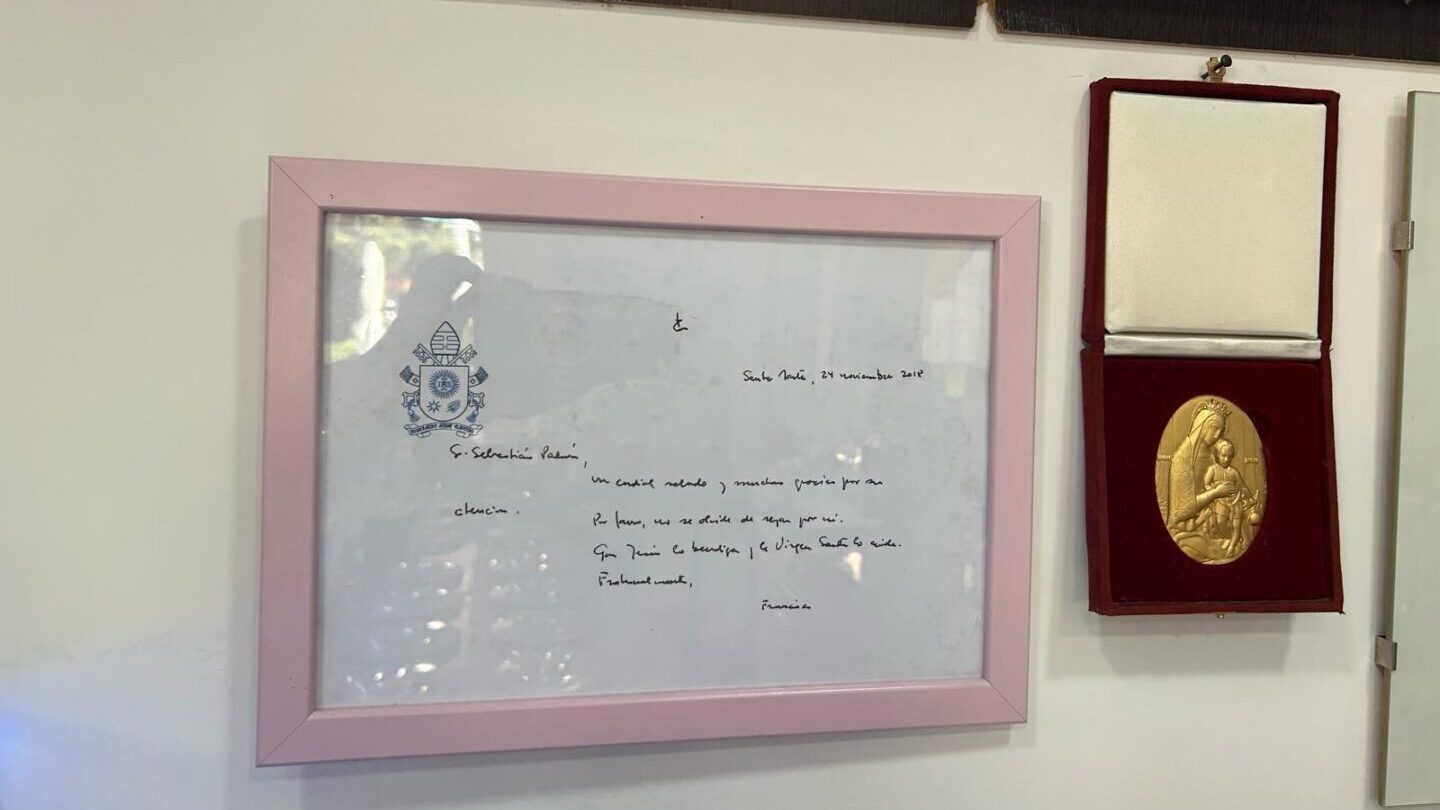 Santa Marta, 24 noviembre 2018
Sr. Sebastián Padrón,
un cordial saludo y muchas gracias por su
atención.
Por favor, no se olvide de rezar por mí.
Que Jesús lo bendiga y la Virgen Santa lo cuide.
Fraternalmente,
Francisco